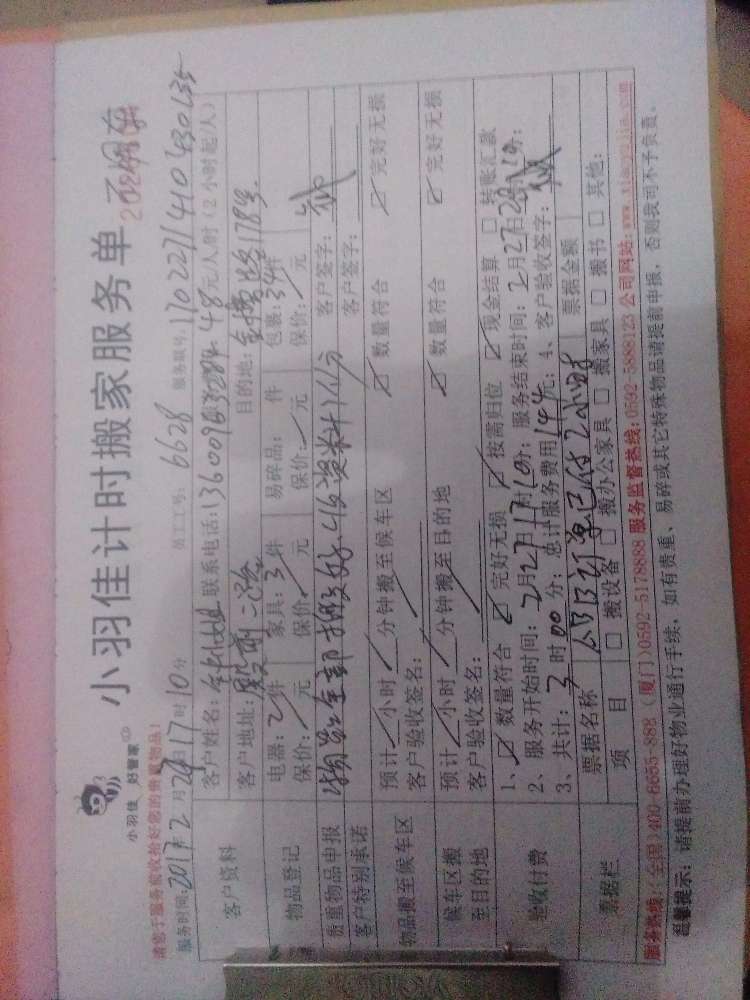 小羽佳 好管家
小羽佳计时搬家服务单
请您于服务前收拾好您的贵重物品!
服务时间:2017年2月 日17时10分 员工工号:6628 服务联号:170227141043063
客户资料 客户姓名: 小姐 联系电话:1360096 48元/人/时(2小时起/人)
客户地址:殿前 目的地: 路178号
物品登记 电器:2件 家具:3件 易碎品: 件 包裹:34件
保价: 元 保价: 元 保价: 元 保价: 元
贵重物品申报 物品全部搬好,收资料1份 客户签字:
客户特别承诺 客户签字:
物品搬至候车区 预计 小时 分钟搬至候车区 ☑ 数量符合 ☑ 完好无损
客户验收签名:
候车区搬至目的地 预计 小时 分钟搬至目的地 ☑ 数量符合 ☑ 完好无损
客户验收签名:
验收付费 1、☑ 数量符合 ☑ 完好无损 ☑ 按需归位 ☑ 现金结算 □ 转账汇款
2、服务开始时间:2月27日17时10分; 服务结束时间:2月27日20时10分;
3、共计:3时00分; 总计服务费用144元; 4、客户验收签字:
票据栏 票据名称 订单已付2小时 票据金额
项 目 □ 搬设备 □ 搬办公家具 □ 搬家具 □ 搬书 □ 其他:
服务热线:(全国)400-6655-888 (厦门)0592-5178888 服务监督热线:0592-5888123 公司网站:www.xiaoyujia.com
温馨提示:请提前办理好物业通行手续,如有贵重、易碎或其它特殊物品请提前申报,否则我司不予负责。